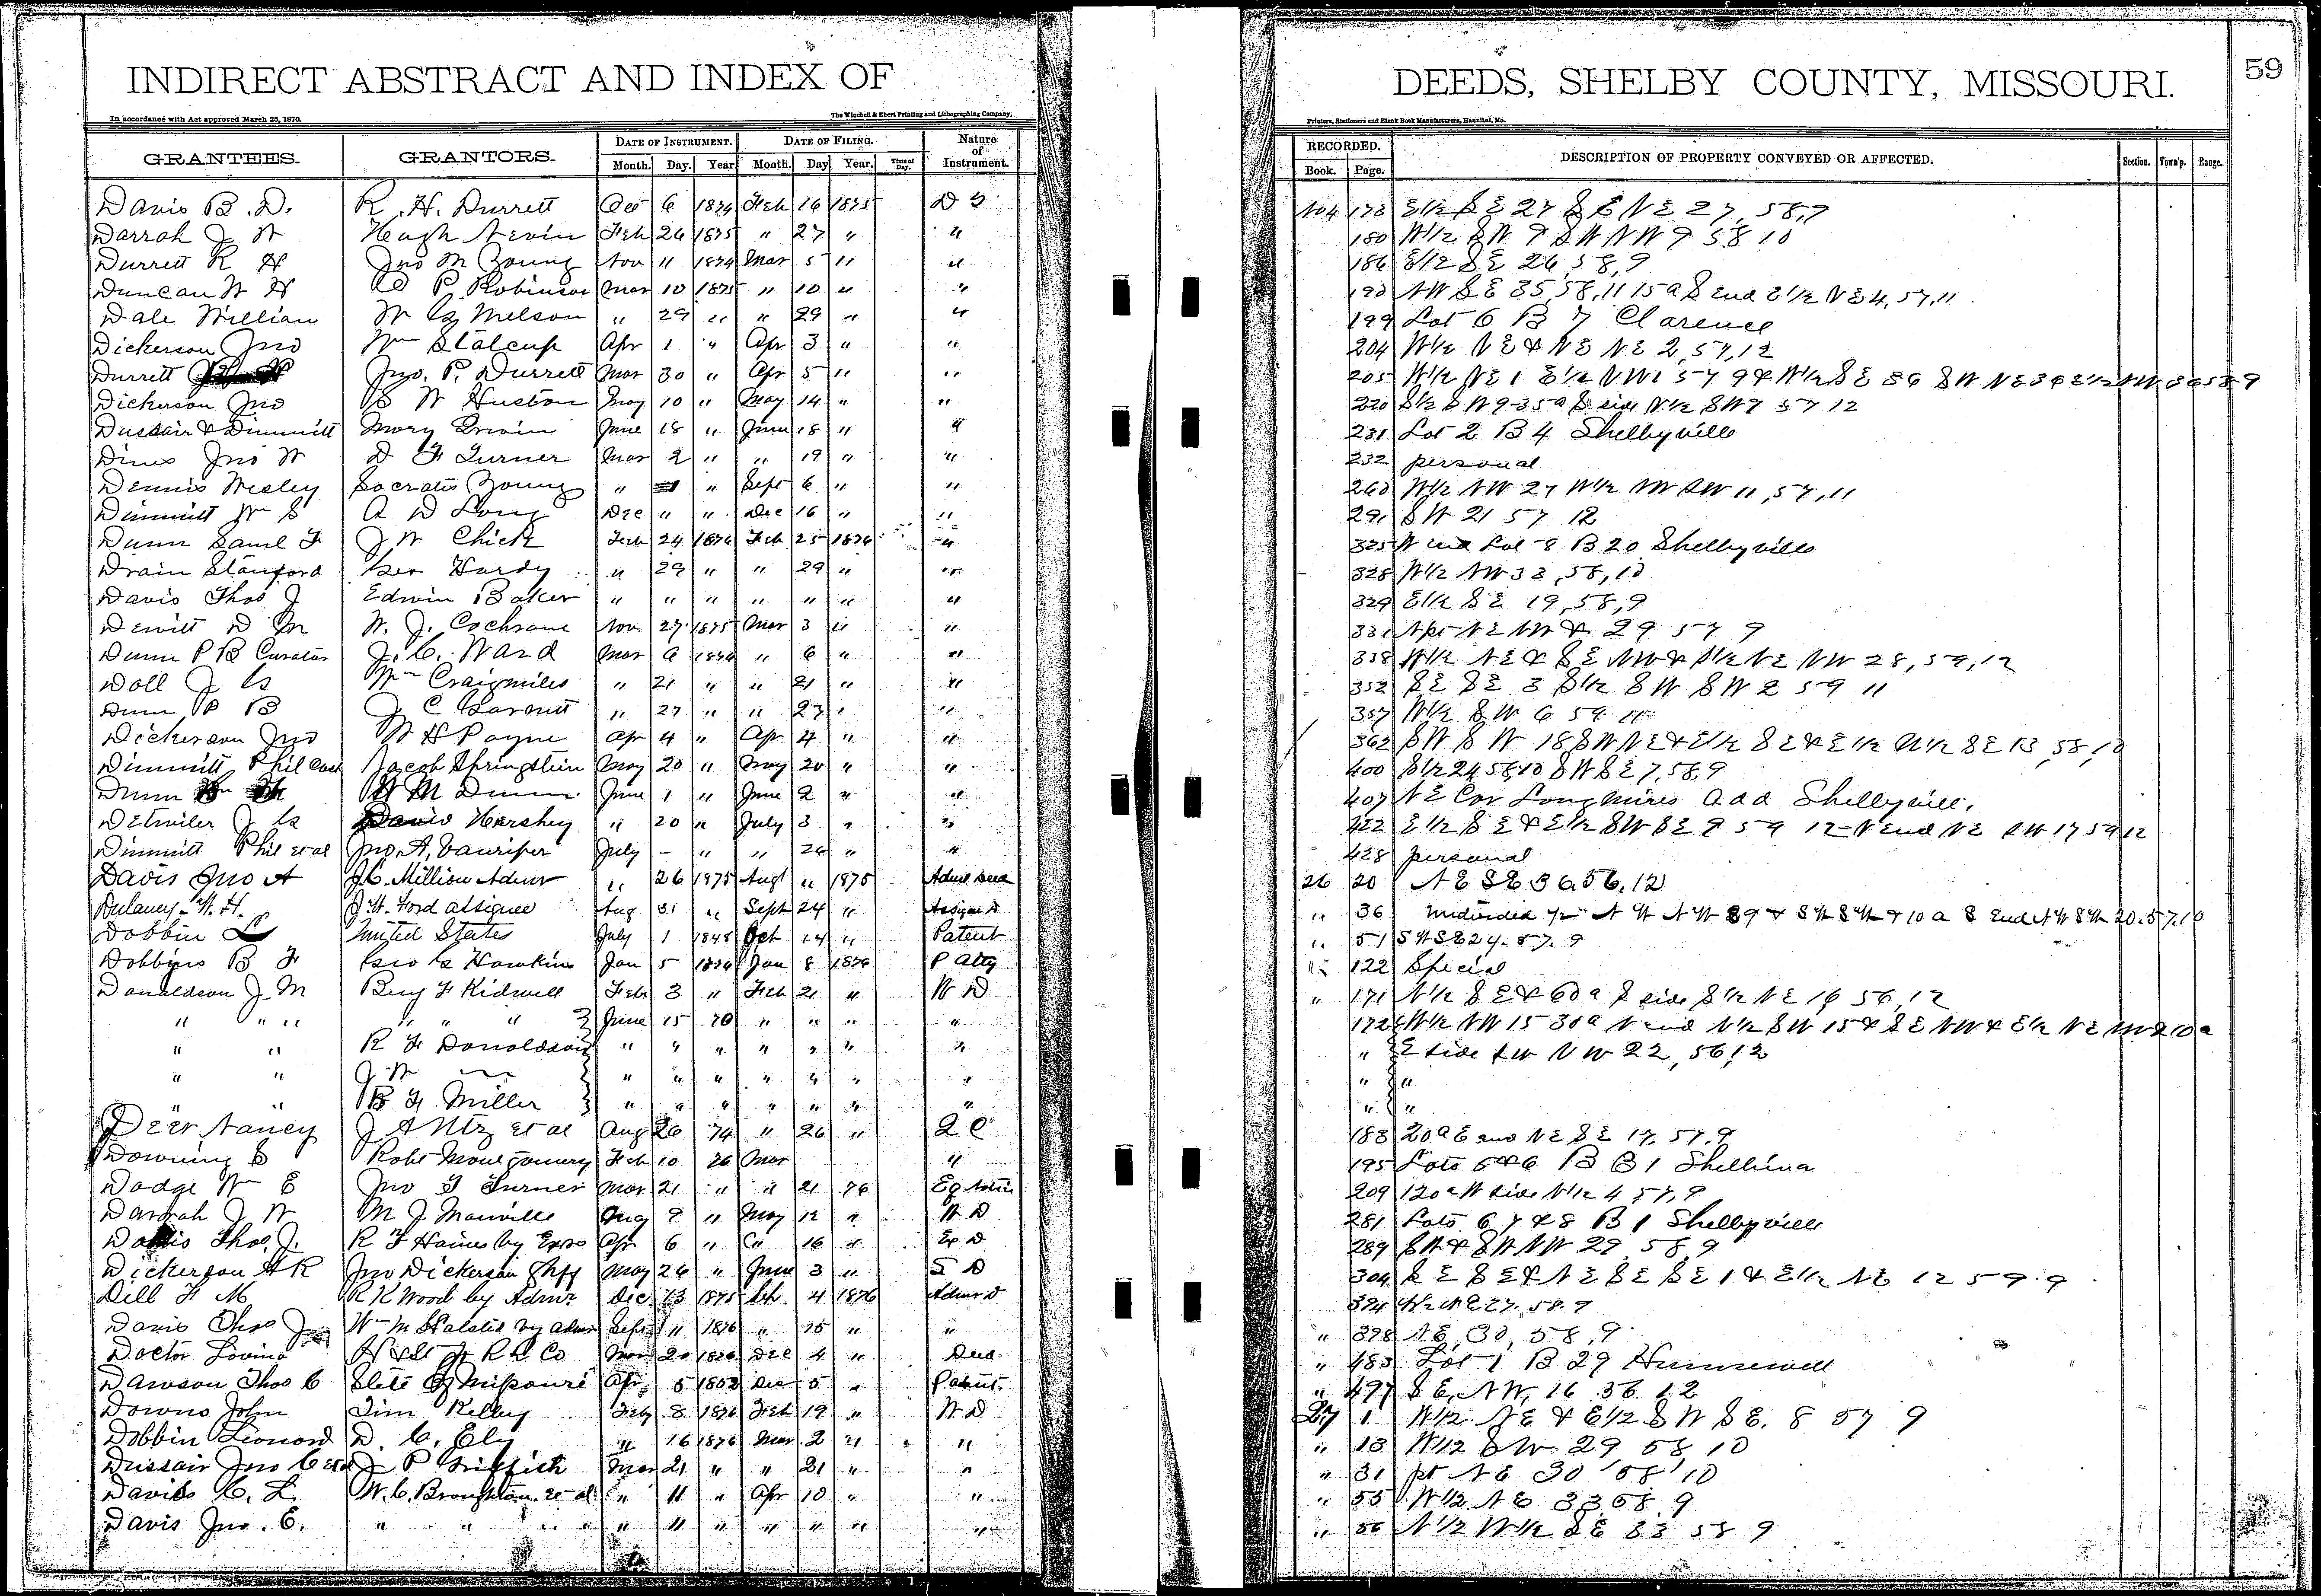 INDIRECT ABSTRACT AND INDEX OF DEEDS, SHELBY COUNTY, MISSOURI. 59
In accordance with Act approved March 25, 1870. The Winchell & Ebert Printing and Lithographing Company, Printers, Stationers and Blank Book Manufacturers, Hannibal, Mo.
GRANTEES. GRANTORS. DATE OF INSTRUMENT. DATE OF FILING. Nature of Instrument. RECORDED. DESCRIPTION OF PROPERTY CONVEYED OR AFFECTED. Section. Town'p. Range.
Month. Day. Year Month. Day Year. Time of Day. Book. Page.
Davis B. D. R. H. Durrett 6 1874 Feb 16 1875 178 E1/2 S E 27 S E N E 27, 58, 9
Darrah J W Hugh Nevin Feb 26 1875 " 27 " " 180 W1/2 S W 9 S W N W 9 58 10
Durrett R H Jno M Young Nov 11 1874 Mar 5 " " 186 E1/2 S E 26, 58, 9
Duncan W H P Robinson Mar 10 1875 " 10 " " 190 N W S E 35, 58, 11 15 a S End E1/2 N E 4, 57, 11
Dale William W G Melson " 29 " " 29 " " 199 Lot 6 B 7 Clarence
Dickerson Jno Wm Stalcup Apr 1 " Apr 3 " " 204 W1/2 N E & N E N E 2, 57, 12
Durrett Jno. P. Durrett Mar 30 " Apr 5 " " 205 W1/2 N E 1 E1/2 N W 1 57 9 & W1/2 S E 36 S W N E 36 E1/2 N W 36 58 9
Dickerson Jno W Huston May 10 " May 14 " " 220 S1/2 S W 9 35 a S side N1/2 S W 9 57 12
Dussair & Dimmitt Mary Irwin June 18 " June 18 " " 231 Lot 2 B 4 Shelbyville
Dines Jno W D F Turner Mar 2 " " 19 " " 232 personal
Dennis Wesley Socrates Young " " Sept 6 " " 260 W1/2 N W 27 W1/2 N W S W 11, 57, 11
Dimmitt Wm S A D Long Dec " " Dec 16 " " 291 S W 21 57 12
Dunn Saml F J W Chick Feb 24 1876 Feb 25 1876 " 325 W end Lot 8 B 20 Shelbyville
Drain Stanford Geo Hardy " 29 " " 29 " " 328 W1/2 N W 33, 58, 10
Davis Thos J Edwin Baker " " " " " " " 329 E1/2 S E 19, 58, 9
Dewitt D M W. J. Cochrane Nov 27 1875 Mar 3 " " 331 N pt N E N W & 29 57 9
Dunn P B Curator J. C. Ward Mar 6 1876 " 6 " " 338 W1/2 N E & S E N W & S1/2 N E N W 28, 59, 12
Doll J G Wm Craigmiles " 21 " " 21 " " 352 S E S E 3 S1/2 S W S W 2 59 11
Dunn P B J C Garnett " 27 " " 27 " " 357 W1/2 S W 6 59 11
Dickerson Jno W H Payne Apr 4 " Apr 4 " " 362 S W S W 18 S W N E & E1/2 S E & E1/2 W1/2 S E 13, 58, 10
Dimmitt Phil Jacob Springstein May 20 " May 20 " " 400 S1/2 24 58 10 S W S E 7, 58, 9
Dunn W M Dunn June 1 " June 2 " " 407 N E Cor Longmires Add Shelbyville,
Detwiler J G David Hershey " 20 " July 3 " " 422 E1/2 S E & E1/2 S W S E 9 59 12 N end N E S W 17 59 12
Dimmitt Phil et al Jno. A. Vanriper July - " " 26 " " 428 personal
Davis Jno A J. C. Million Admr " 26 1975 Augt " 1875 Admr Deed 26 20 N E S E 36. 56. 12
Dulaney W. H. J. W. Ford assignee Aug 31 " Sept 24 " Assignee D " 36
Dobbin L United States July 1 1848 Oct 14 " Patent " 51 S W S E 24. 57. 9
Dobbins B F Geo G Hawkins Jan 5 1876 Jan 8 1876 P Atty " 122 Special
Donaldson J M Benj F Kidwell Feb 3 " Feb 21 " W D " 171 N1/2 S E & 60 a S side S1/2 N E 16 56, 12
" " " " " " June 15 70 " " " " 172 W1/2 N W 15 30 a N end N1/2 S W 15 & S E N W & E1/2 N E N W 2 10 a
" " R F Donaldson " " " " " " " " E side S W N W 22, 56, 12
" " J W " " " " " " " " "
" " B F Miller " " " " " " " " "
Deer, Nancy J A Utz et al Aug 26 74 " 26 " Q C 183 20 a E end N E S E 17. 57. 9
Downing S Robt Montgomery Feb 10 76 Mar " 195 Lots 5 & 6 B B 1 Shelbina
Dodge Wm E Jno T Turner Mar 21 " " 21 76 209 120 a W side N1/2 4, 57, 9
Darrah J W M J Manville Aug 9 " May 12 " W D 281 Lots 6 7 & 8 B 1 Shelbyville
Davis Thos. J. R F Haines by Exrs Apr 6 " " 16 " Ex D 289 S W & S W N W 29, 58, 9
Dickerson A R Jno Dickerson Shff May 26 " June 3 " S D 304 S E S E & N E S E S E 1 & E1/2 N E 12 59 9
Dill F M R K Wood by Admr Dec 13 1875 4 1876 Admr D 394 W1/2 N E 27. 58. 9
Davis Thos J Wm M Halsted by Admr Sept " 1876 " 25 " " " 398 N E 30, 58, 9
Doctor Lovina H & St J R R Co 20 1876 Dec 4 " Deed " 483 Lot 1 B 29 Hunnewell
Dawson Thos C State of Missouri Apr 5 1853 Dec 5 " Patent " 497 S E, N W, 16 56 12
Downs John Tim Kelley Feb 8 1876 Feb 19 " W D 27 1 W1/2 N E & E1/2 S W S E. 8 57 9
Dobbin Leonard D. C. Ely " 16 1876 Mar 2 " " " 13 W1/2 S W 29 58 10
Dussair Jno C et al J P Griffith Mar 21 " " 21 " " " 31 pt N E 30 58 10
Davis C. L. W. C. Broughton et al " 11 " Apr 10 " " " 55 W1/2 N E 33 58 9
Davis Jno. C. " " " " " 11 " " " " " " 56 N1/2 W1/2 S E 33 58 9